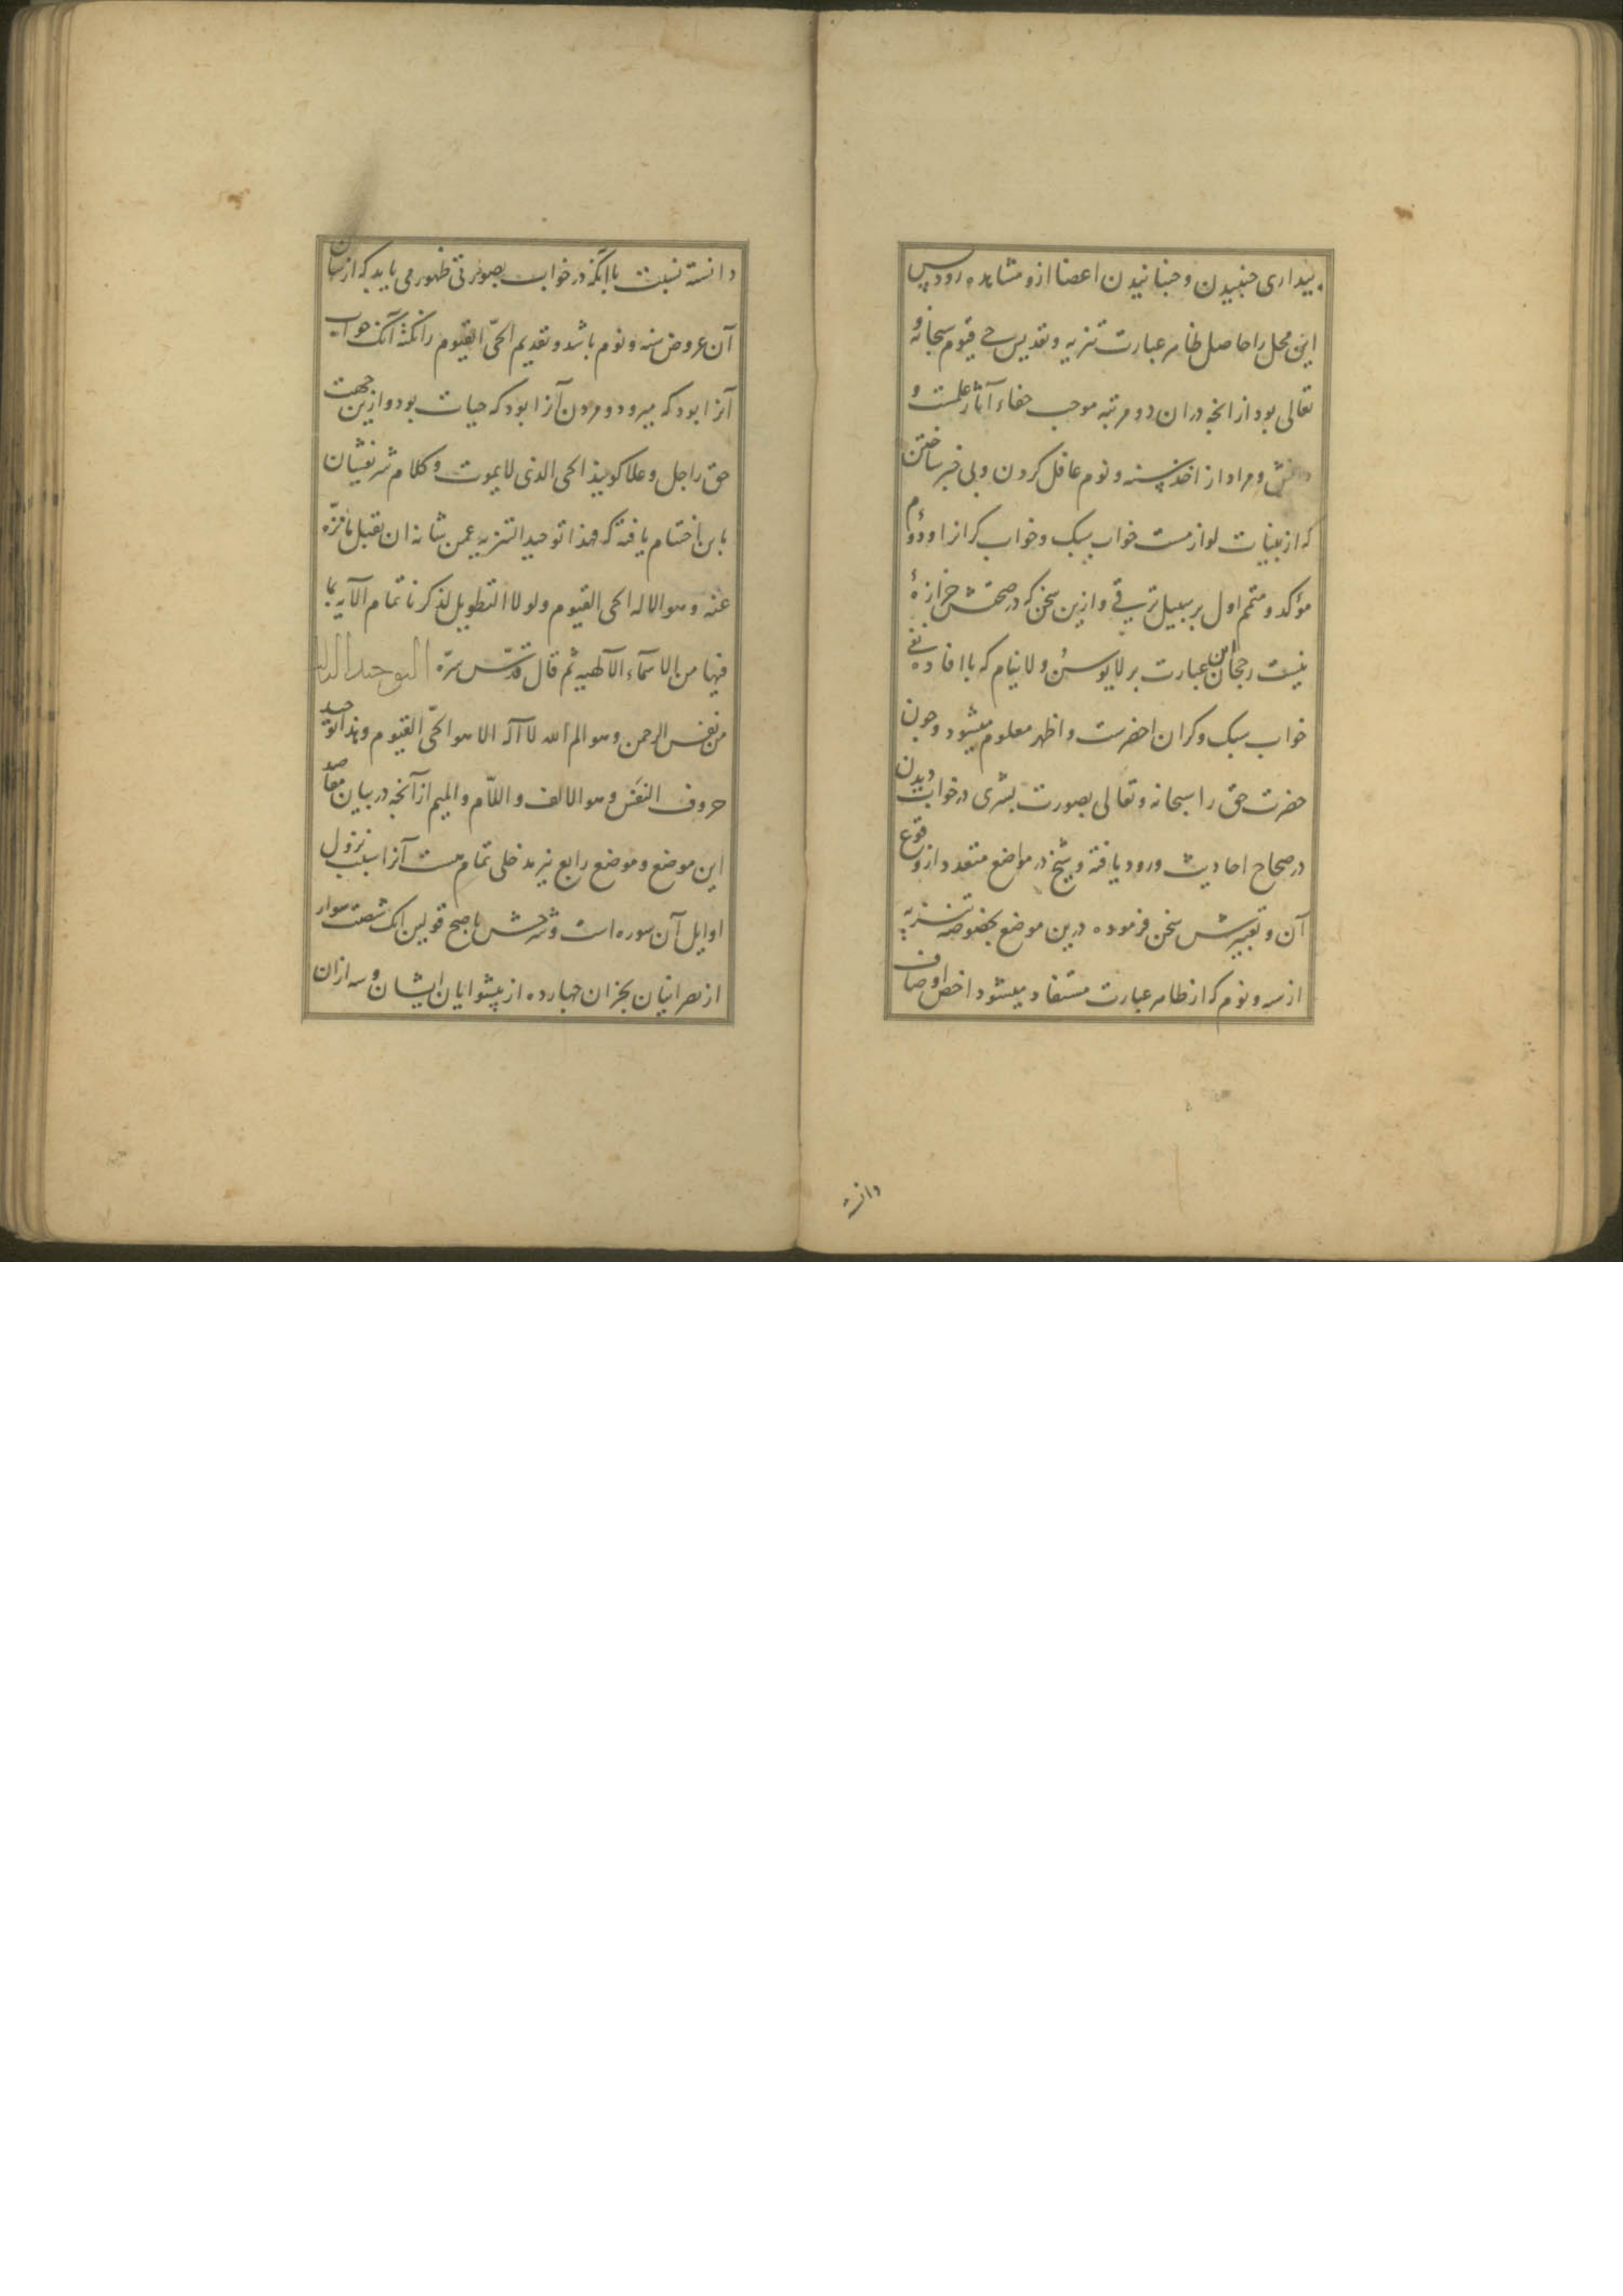 بیداری جنبیدن و جنبانیدن اعضا ازو مشاهده رود پس
این محل را حاصل ظاهر عبارت تنزیه و تقدیس حی قیوم سبحانه و
تعالی بود از آنچه دران دو مرتبه موجب خفاء آثار علمست و
و مراد از اخذ سنه و نوم غافل کردن و بی خبر ساختن
که از بینات لوازمست خواب سبک و خواب کران او دوم
مؤکد و متمم اول بر سبیل ترقی و ازین سخن که در صحتش
نیست رجحان این عبارت بر لا یوسن و لا ینام که با افاده نفی
خواب سبک و کران اخصرست و اظهر معلوم میشود و چون
حضرت حق را سبحانه و تعالی بصورت بشری در خواب دیدن
در صحاح احادیث ورود یافته و شیخ در مواضع متعدد از وقوع
آن و تعبیرش سخن فرموده درین موضع بخصوصه تنزیه
از سنه و نوم که از ظاهر عبارت مستفاد میشود اخص اوصاف
دانسته
دانسته نسبت با آنکه در خواب بصورتی ظهور می یابد که از شان
آن عروض سنه و نوم باشد و تقدیم الحیّ القیوم را نکته آنک خواب
آنرا بود که میرود و مردن آنرا بود که حیات بود و ازین جهت
حق را جل و علا کویند الحی الذی لا یموت و کلام شریفشان
باین اختتام یافته که فهذا توحید التنزیه عمن شانه ان یقبل ما نزّه
عنه و هو الاله الحی القیوم و لو لا التطویل لذکرنا تمام الآیه بما
فیها من الاسماء الآلهیه ثم قال قدّس سرّه التوحید
من نفس الرحمن و هو الم الله لا آله الا هو الحیّ القیوم و هذا توحید
حروف النفَس و هو الالف و اللّام و المیم از آنچه در بیان مقاصد
این موضع و موضع رابع نیز مدخلی تمام هست آنرا سبب نزول
اوایل آن سوره است و شرحش باصح قولین آنک شصت سوار
از نصرانیان نجران چهارده از پیشوایان ایشان و سه ازان